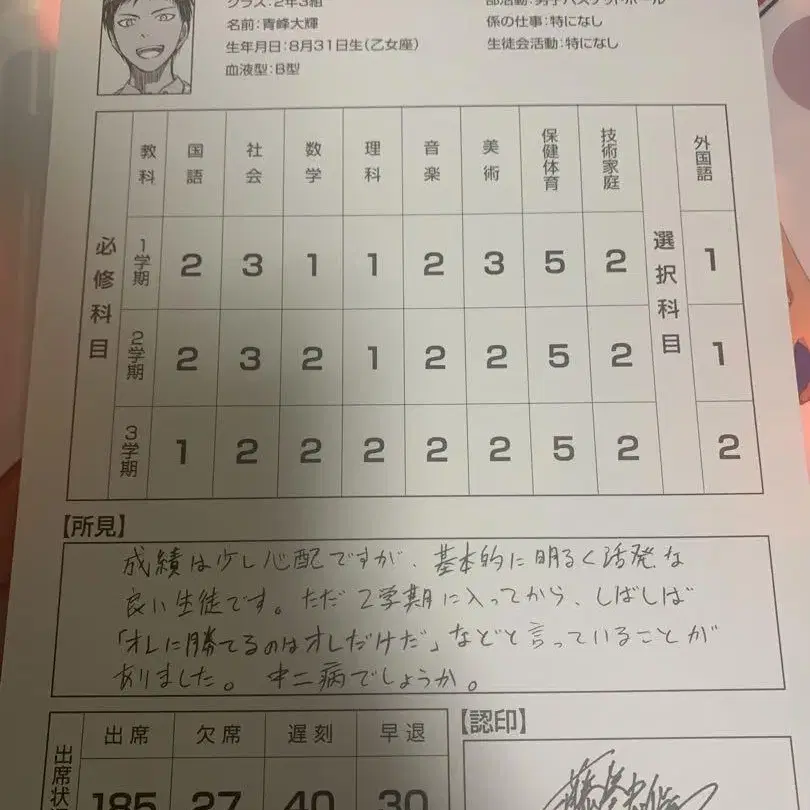 クラス：2年3組
名前：青峰大輝
生年月日：8月31日生（乙女座）
血液型：B型
部活動：男子バスケットボール
係の仕事：特になし
生徒会活動：特になし
必修科目
教科 国語 社会 数学 理科 音楽 美術 保健体育 技術家庭 選択科目 外国語
1学期 2 3 1 1 2 3 5 2 1
2学期 2 3 2 1 2 2 5 2 1
3学期 1 2 2 2 2 2 5 2 2
【所見】
成績は少し心配ですが、基本的に明るく活発な
良い生徒です。ただ2学期に入ってから、しばしば
「オレに勝てるのはオレだけだ」などと言っていることが
ありました。中二病でしょうか。
出席 欠席 遅刻 早退
出席状
185 27 40 30
【認印】